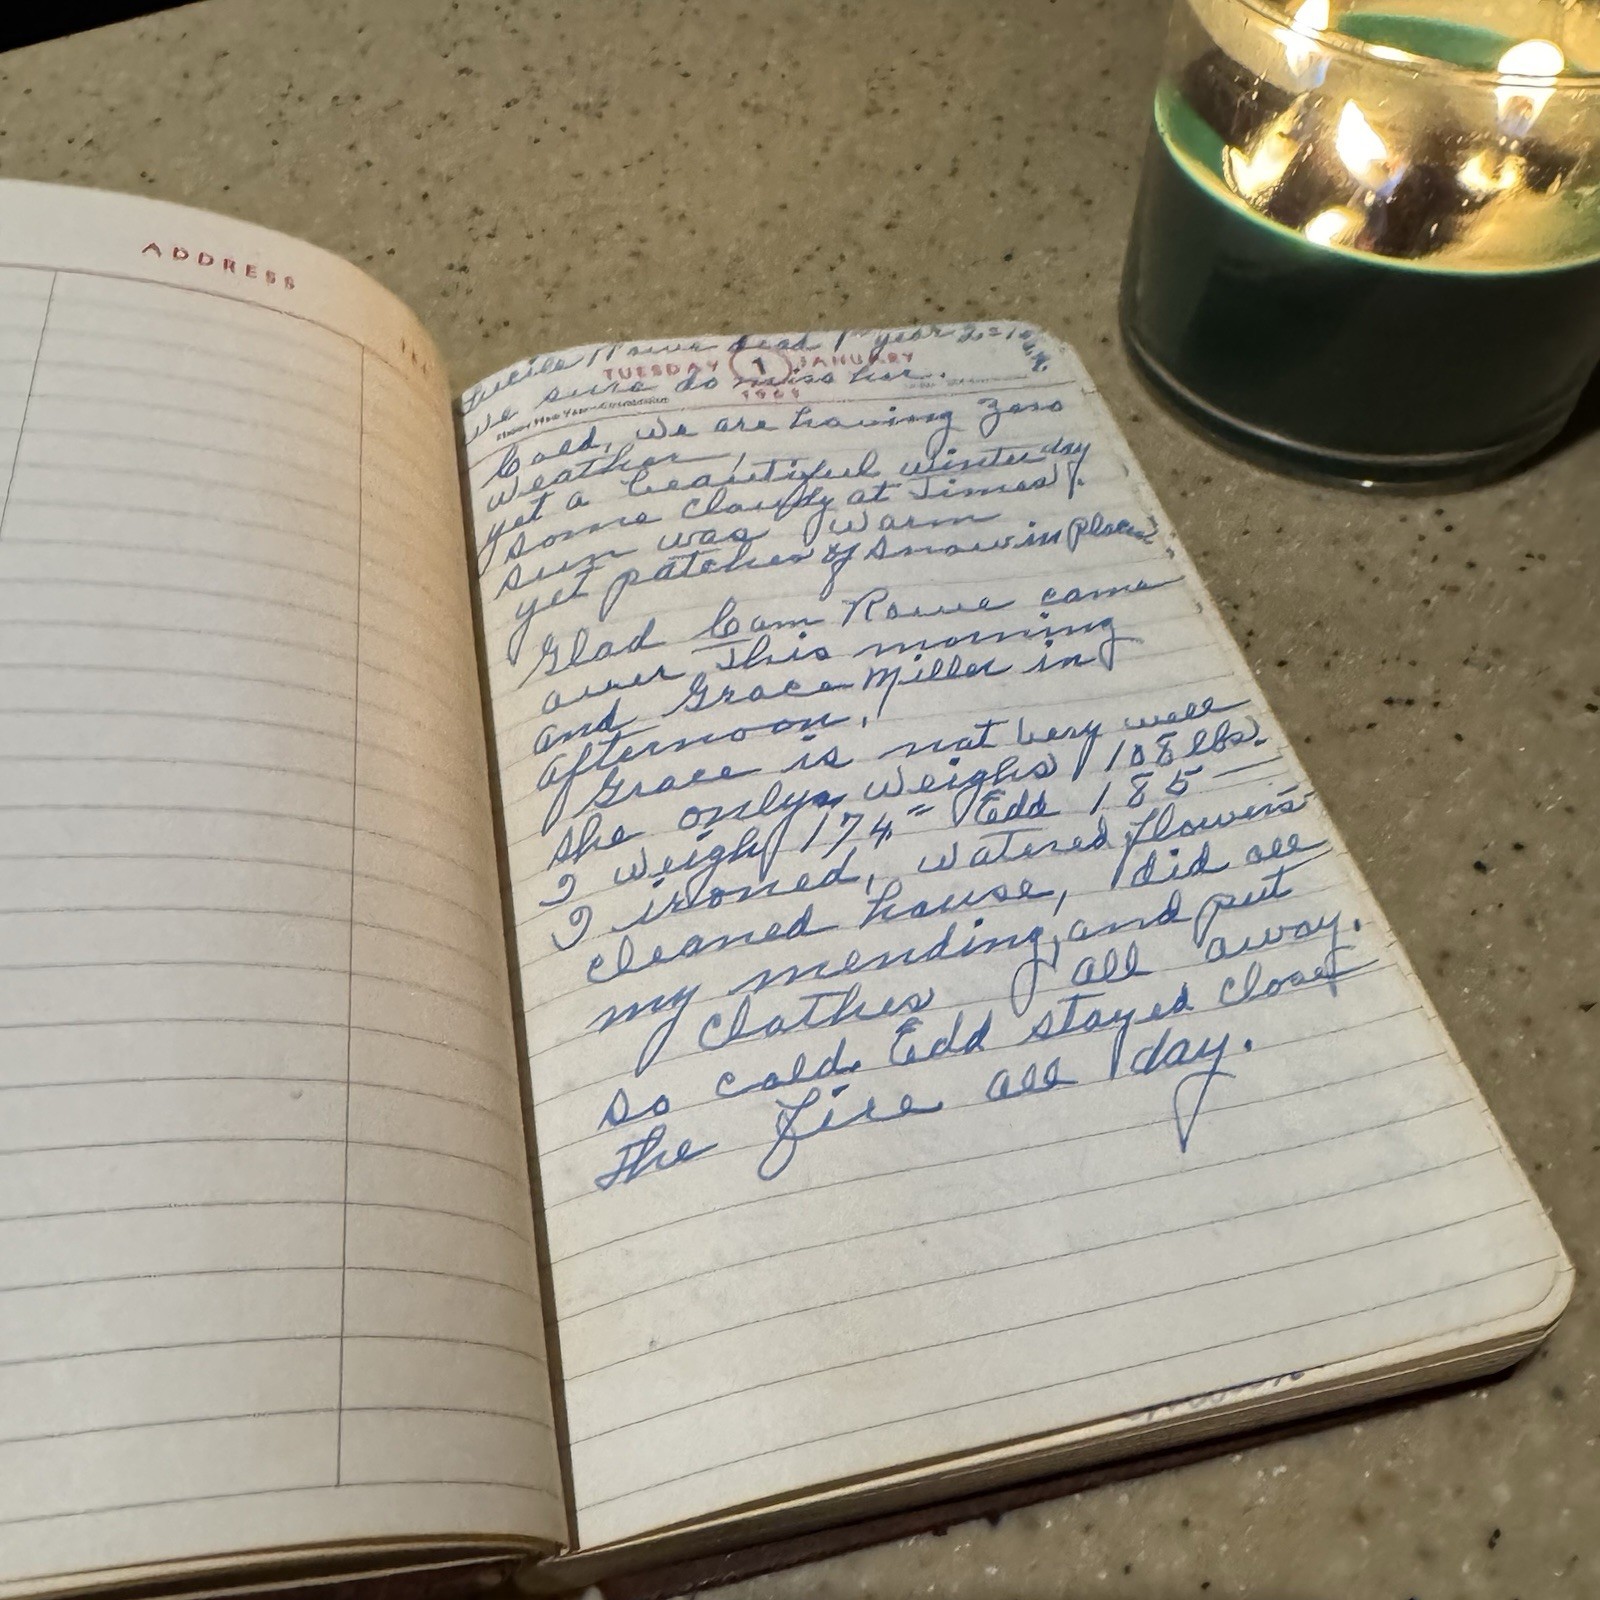 ADDRESS
Lucile Rowe dead 1 year
TUESDAY 1 JANUARY
We sure do miss her.
Cold, We are having Zero
weather,
yet a beautiful winter day
some cloudy at times
sun was warm
yet patches of snow in places
Glad Cam Rowe came
over This morning
and Grace Miller in
afternoon.
Grace is not very well
she only weighs 108 lbs.
I weigh 174" Edd 185
I ironed, watered flowers
cleaned house, did all
my mending, and put
clothes all away.
So cold. Edd stayed close
the fire all day.